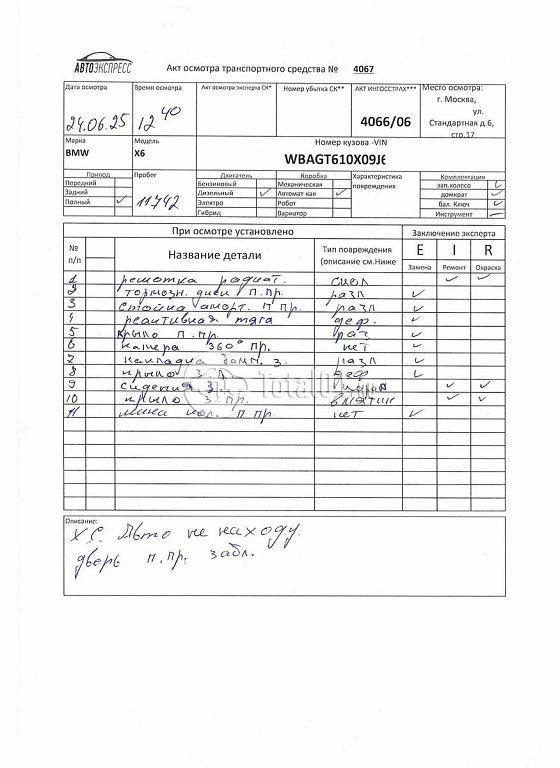 АВТОЭКСПРЕСС
Акт осмотра транспортного средства № 4067
Дата осмотра Время осмотра Акт осмотра эксперта СК* Номер убытка СК** АКТ ИНГОССТРАХ*** Место осмотра:
24.06.25 12 40 4066/06 г. Москва, ул. Стандартная д.6, стр.17
Марка Модель Номер кузова -VIN
BMW X6 WBAGT610X09J6
Привод Пробег Двигатель Коробка Характеристика повреждения Комплектация
Передний Бензиновый Механическая зап.колесо
Задний 11742 Дизельный Автомат кая домкрат
Полный Электро Робот бал. Ключ
Гибрид Вариатор Инструмент
При осмотре установлено Заключение эксперта
№ п/п Название детали Тип повреждения (описание см.Ниже E I R
Замена Ремонт Окраска
1 решотка радиат. скол
2 тормозн. диск п.пр. разл
3 стойка аморт. п пр. разл
4 реактивная тяга деф.
5 крыло п.пр. раз
6 камера 360° пр. нет
7 накладка бамп. з. разл
8 крыло з л. деф
9 сидения з.
10 крыло з. пр. вмятин
11 п пр. нет
Total01
Описание:
Х.С. Авто не находу.
дверь п.пр. забл.